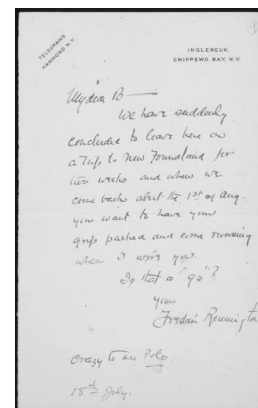 TELEGRAMS
HAMMOND N.Y.
INGLENEUK,
CHIPPEWA BAY, N.Y.
My dear B—
We have suddenly
concluded to leave here on
a trip to New Foundland for
two weeks and when we
come back abut the 1st of Aug.
you want to have your
grip packed and come running
when I wire you.
Is that a "go"?
Yours
Frederic Remington
Crazy to see Polo.
15th July.